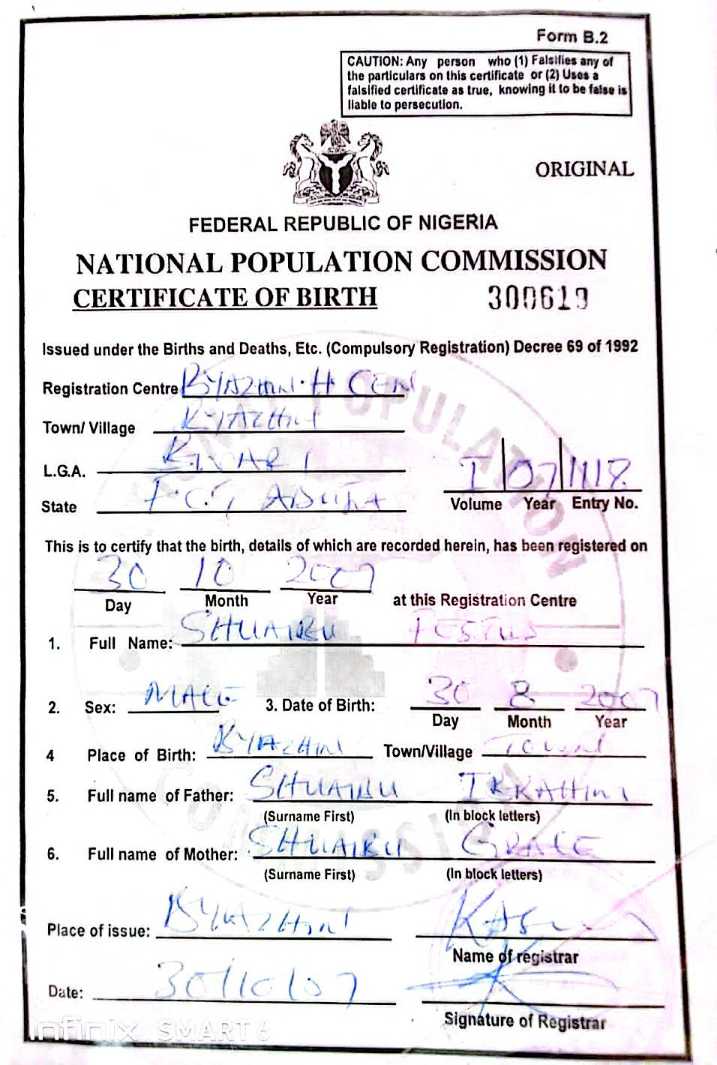 Form B.2
CAUTION: Any person who (1) Falsifies any of
the particulars on this certificate or (2) Uses a
falsified certificate as true, knowing it to be false is
liable to persecution.
ORIGINAL
FEDERAL REPUBLIC OF NIGERIA
NATIONAL POPULATION COMMISSION
CERTIFICATE OF BIRTH 300619
Issued under the Births and Deaths, Etc. (Compulsory Registration) Decree 69 of 1992
Registration Centre BYAZHIN. H CEN
Town/ Village BYAZHIN
L.G.A. BWARI
State F.C.T ABUJA
I 07 1118
Volume Year Entry No.
This is to certify that the birth, details of which are recorded herein, has been registered on
30 10 2007
Day Month Year at this Registration Centre
1. Full Name: SHUAIBU FESTUS
2. Sex: MALE 3. Date of Birth: 30 8 2007
Day Month Year
4 Place of Birth: BYAZHIN Town/Village TOWN
5. Full name of Father: SHUAIBU IBRAHIM
(Surname First) (In block letters)
6. Full name of Mother: SHUAIBU GRACE
(Surname First) (In block letters)
Place of issue: BYAZHIN
Name of registrar
Date: 30/10/07
Signature of Registrar
Infinix SMART 6
NATIONAL POPULATION COMMISSION